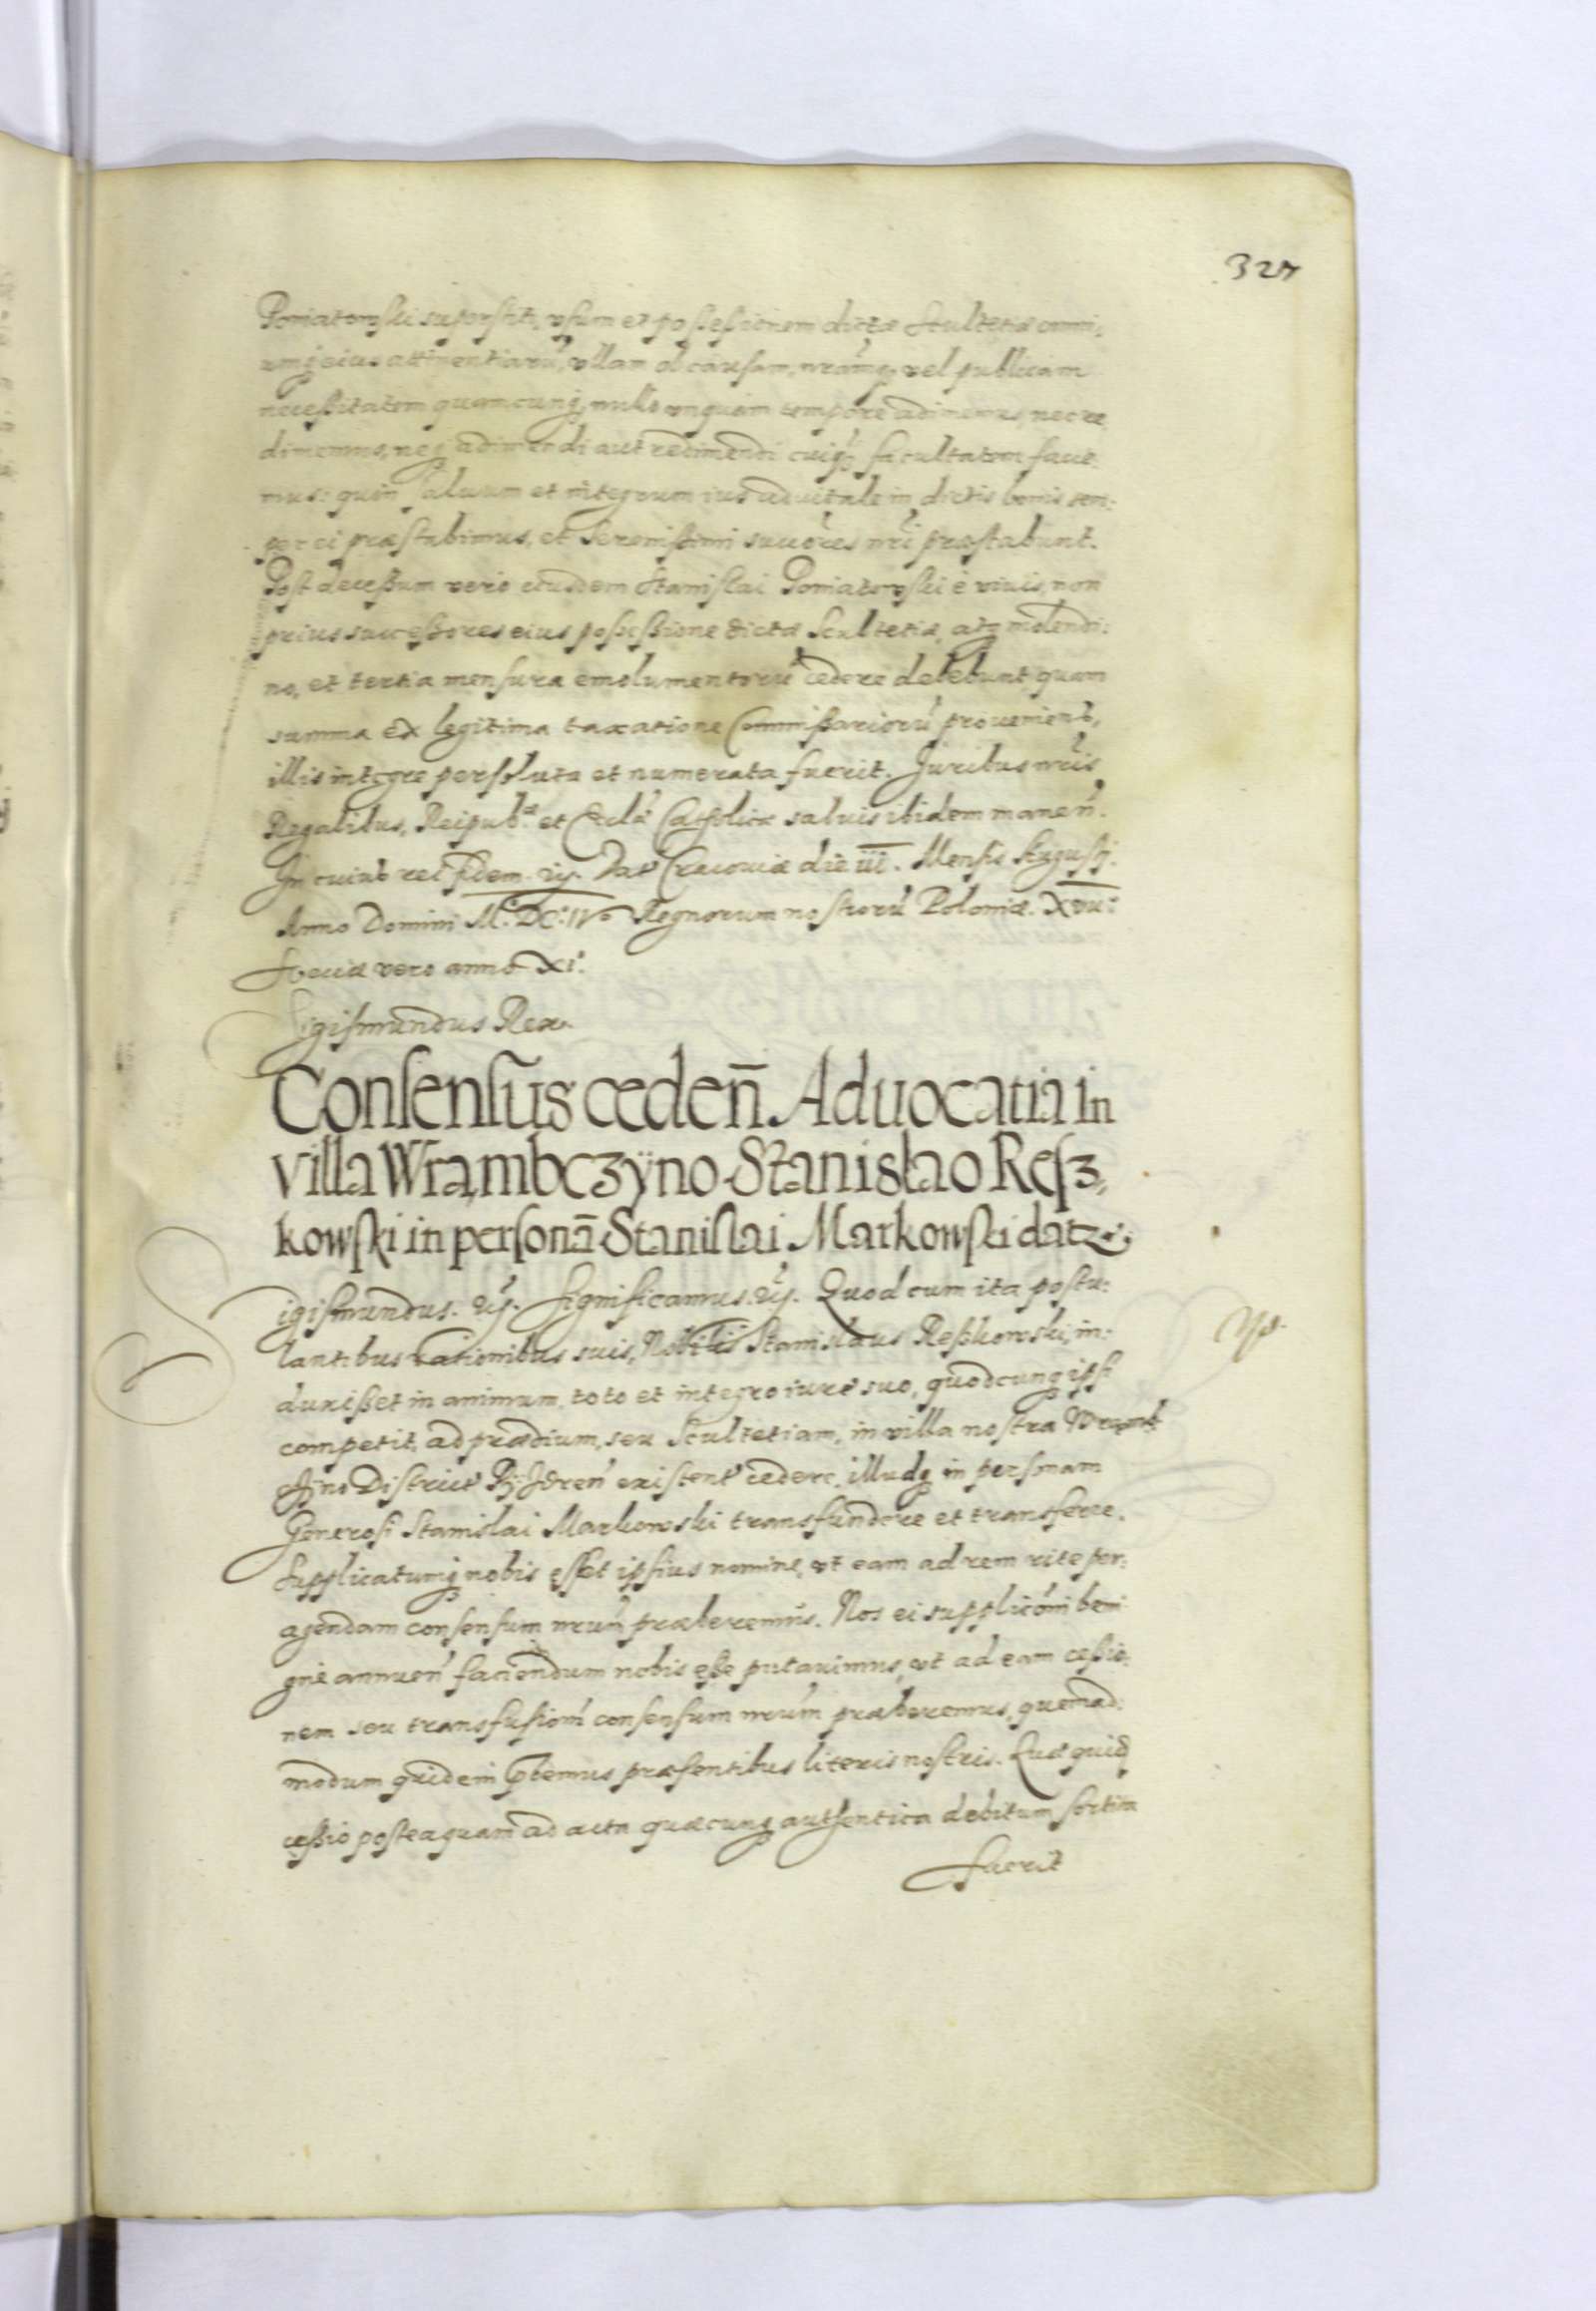 327
Poniatowski superstiti, vsum et possessionem dictæ Scultetiæ omni,
umq eius attinentiarũ, vllam ob causam, nrãmq, vel publicam
necessitatem quamcunq, nullo unquam tempore adimemus, nec re
dimemus, neq adimendi aut redimendi cuiq facultatem facie:
mus: quin saluum et integrum ius aduitale in dictis bonis sem:
per ei præstabimus, et Serenissimi succõres nr̃i præstabunt.
Post decessum vero eiusdem Stanislai Poniatowski è viuis, non
prius successores eius possessione dictæ Scultetiæ, atq molendi:
no, et tertia mensura emolumentorũ cedere debebunt quam
summa ex legitima taxatione Commissariorũ proueniens,
illis integre persoluta et numerata fuerit. Juribus nr̃is
Regalibus, Reipub:æ et Ecclæ Catholicæ saluis ibidem manen̄.
In cuius rei fidem. ꝛc. Dat Cracouiæ die iii. Mensis Augusti.
Anno Domini M.DC.IV Regnorum nostrorũ Poloniæ. XVII:
Sveciæ vero anno XI.
Sigismundus Rex.
Consensus ceden̄. Aduocatia in
villa Wrambczÿno Stanislao Resz,
kowski in personã Stanislai Markowski datz.
Sigismundus. ꝛc. Significamus. ꝛc. Quod cum ita postu:
lantibus rationibus suis, Nobilis Stanislaus Reszkowski, in:
duxisset in animum, toto et integro iure suo, quodcunq ipsi
competit, ad prædium, seu Scultetiam, in villa nostra Wramb
czÿno District existent cedere, illudq in personam
Generosi Stanislai Markowski transfundere et transferre.
Supplicatumq nobis esset ipsius nomine, vt eam ad rem rite per:
agendam consensum nrũm præberemus. Nos ei supplicõni beni
gnè annuen̄ faciendum nobis esse putauimus, vt ad eam cessio:
nem seu transfusionẽ consensum nrũm præberemus, quemad:
modum quidem præbemus præsentibus literis nostris. Quæ quidẽ
cessio posteaquam ad acta quæcunq authentica debitum sortita
fuerit